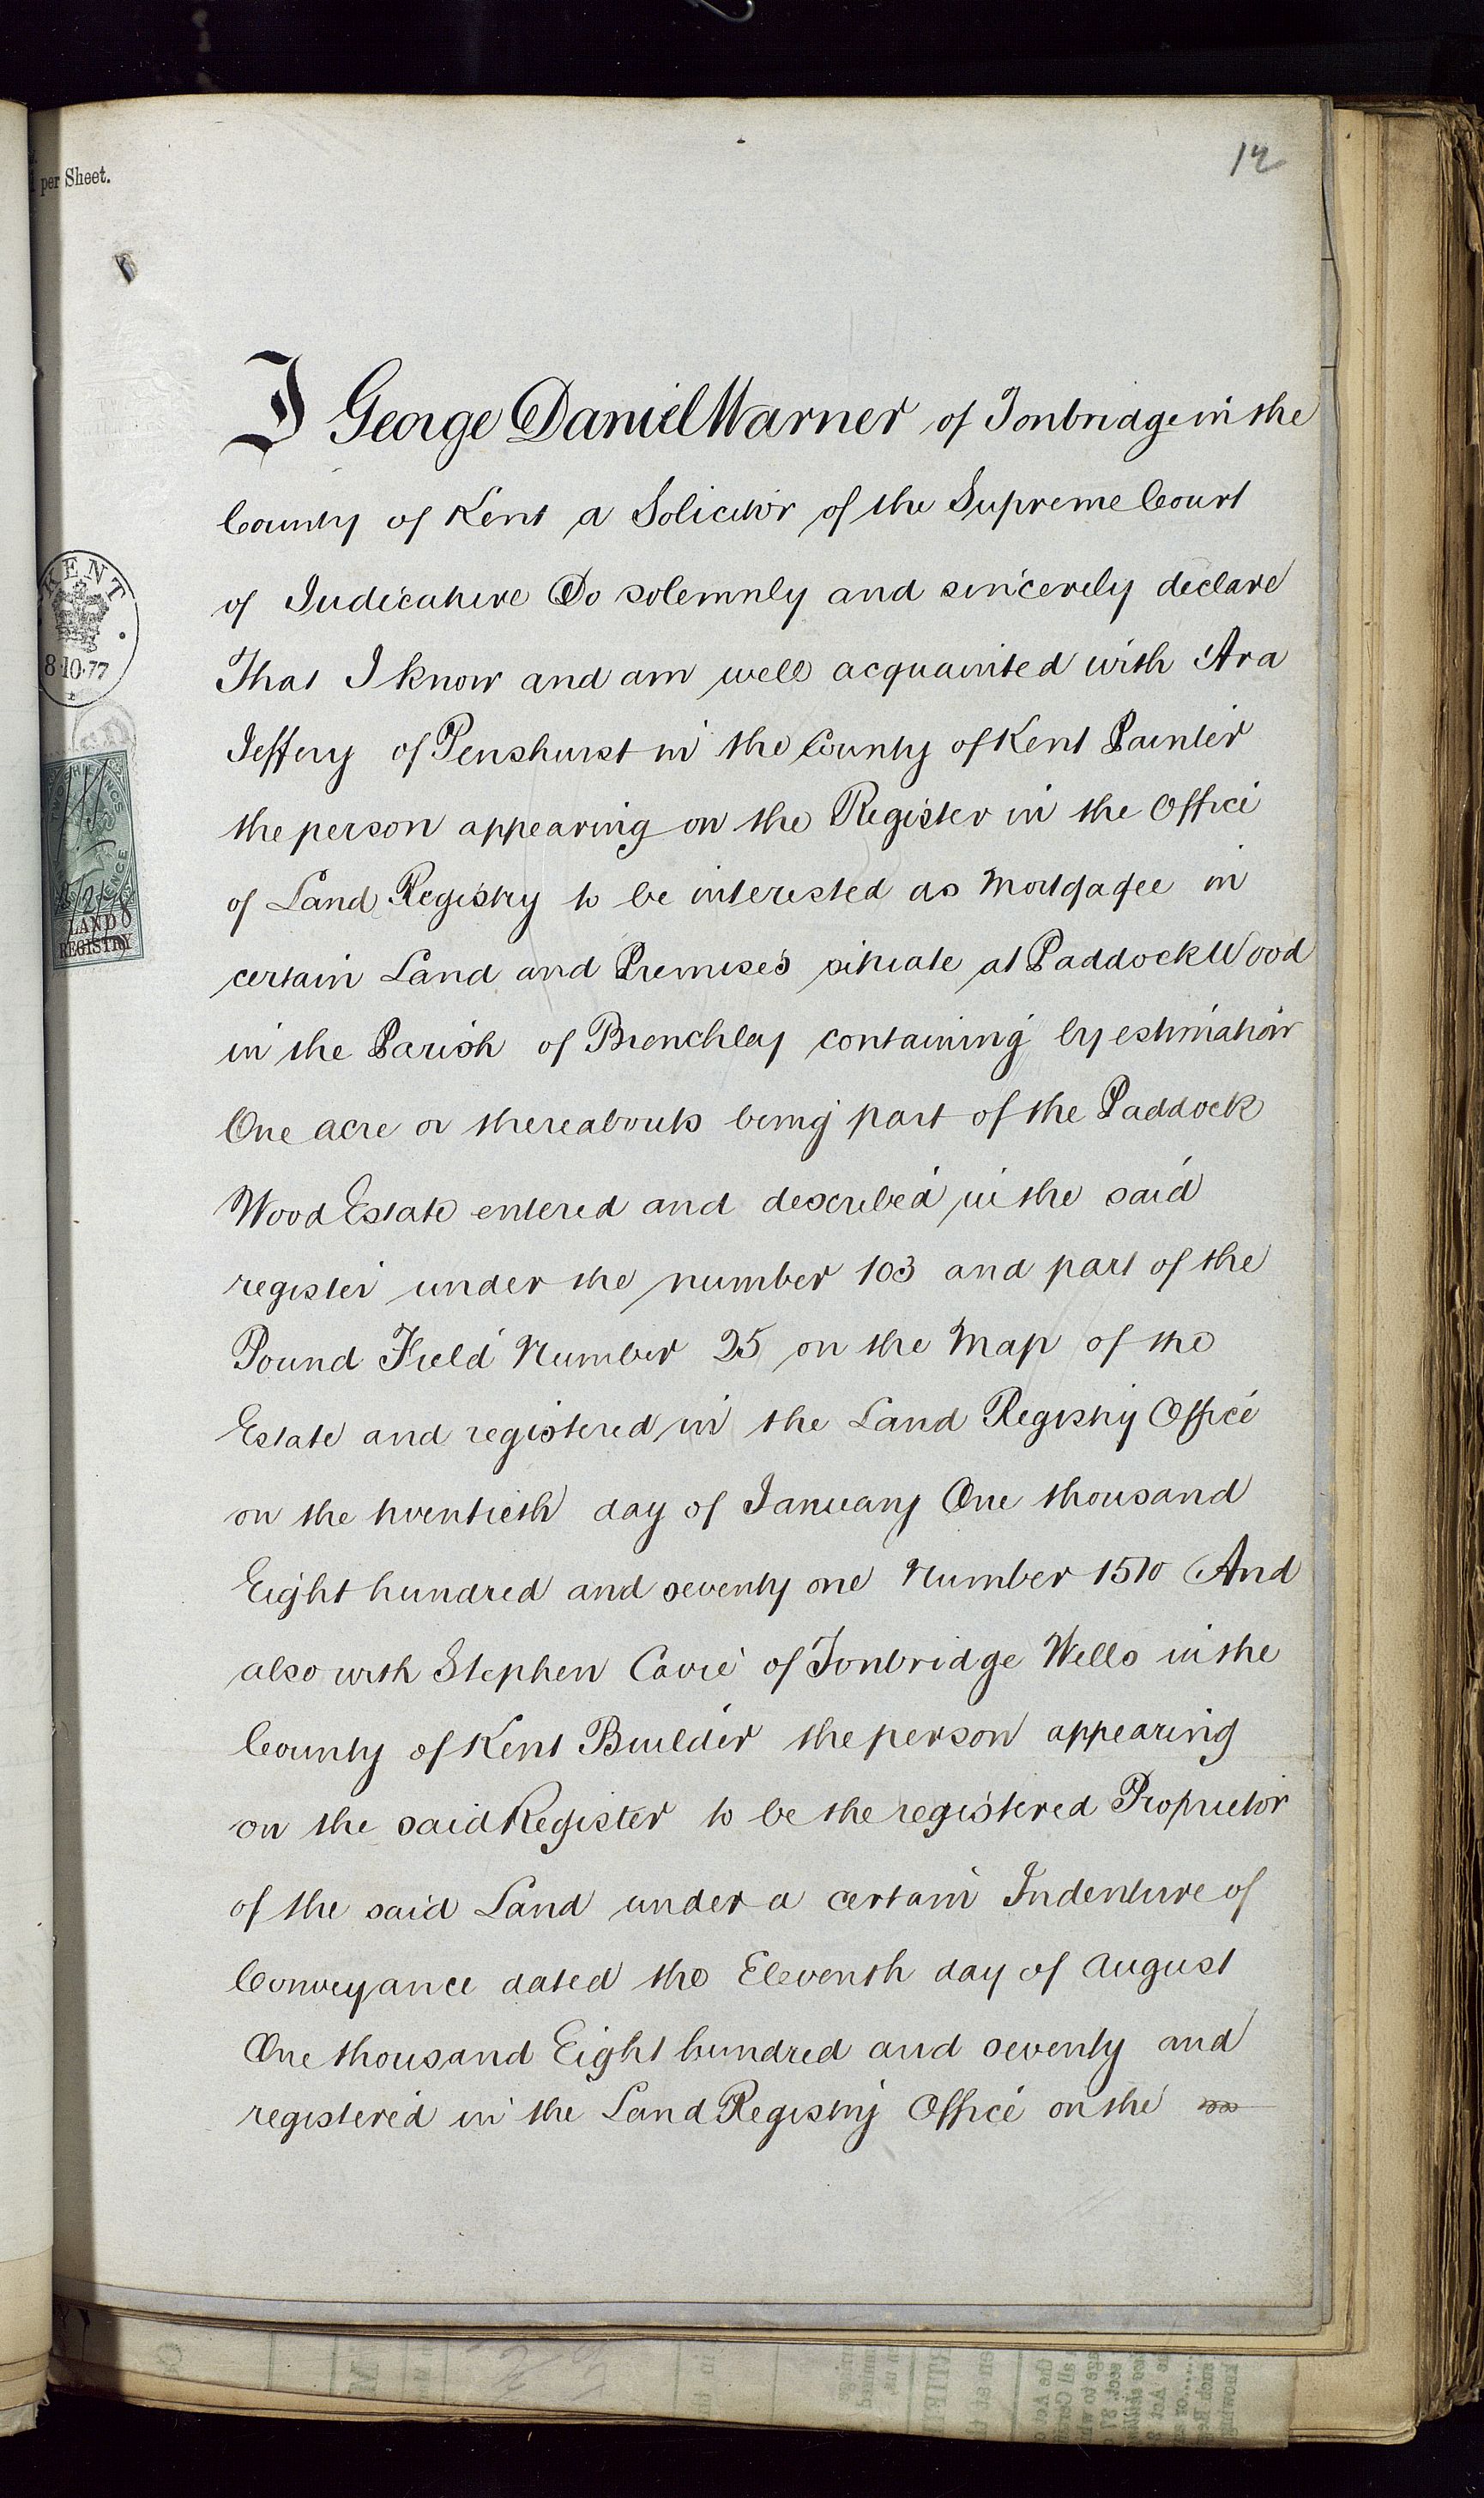 12
per Sheet.
I George Daniel Warner of Tonbridge in the
County of Kent a Solicitor of the Supreme Court
of Judicature Do solemnly and sincerely declare
That I know and am well acquainted with Asa
Jeffery of Penshurst in the County of Kent Painter
the person appearing on the Register in the Office
of Land Registry to be interested as Mortgagee in
certain Land and Premises situate at Paddock Wood
in the Parish of Brenchley containing by estimation
One acre or thereabouts being part of the Paddock
Wood Estate entered and described in the said
register under the number 103 and part of the
Pound Field Number 25 on the Map of the
Estate and registered in the Land Registry Office
on the twentieth day of January One thousand
Eight hundred and seventy one Number 1510 And
also with Stephen Cavie of Tonbridge Wells in the
County of Kent Builder the person appearing
on the said Register to be the registered Proprietor
of the said Land under a certain Indenture of
Conveyance dated the Eleventh day of August
One thousand Eight hundred and seventy and
registered in the Land Registry Office on the
KENT
8·10·77
LAND
REGISTRY